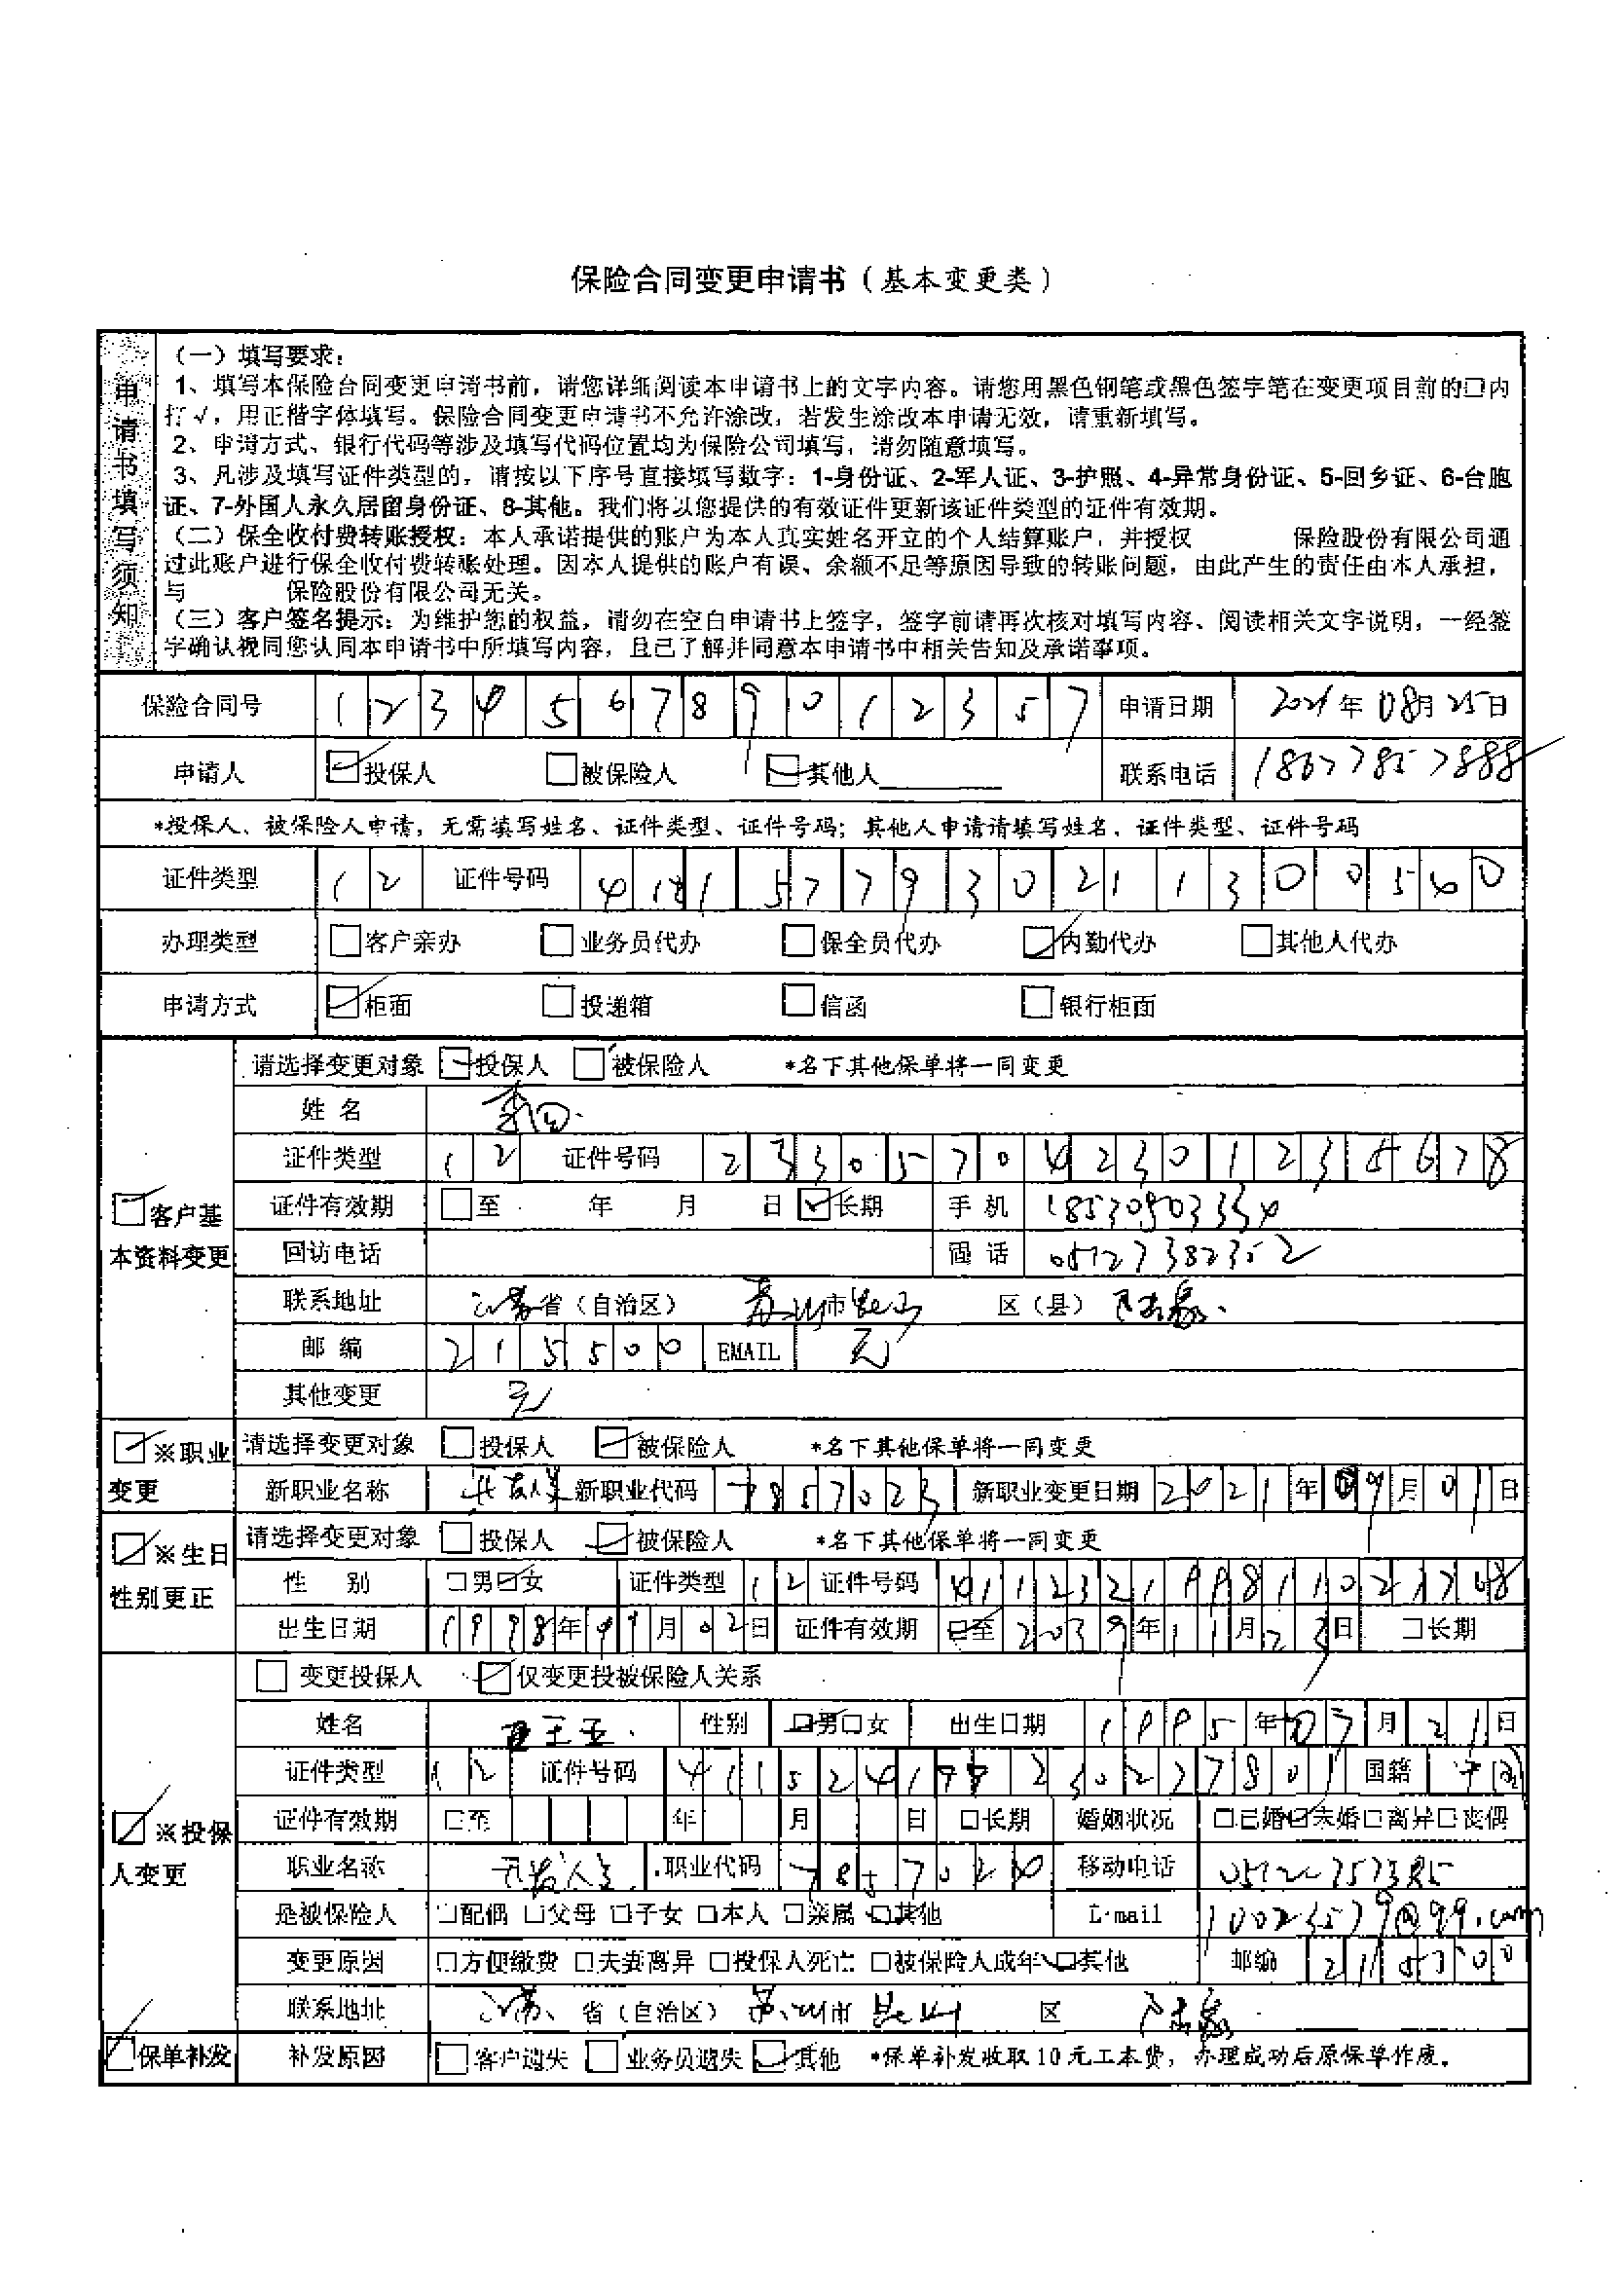 保险合同变更申请书（基本变更类）
申请书填写须知
（一）填写要求：
1、填写本保险合同变更申请书前，请您详细阅读本申请书上的文字内容。请您用黑色钢笔或黑色签字笔在变更项目前的□内
打√，用正楷字体填写。保险合同变更申请书不允许涂改，若发生涂改本申请无效，请重新填写。
2、申请方式、银行代码等涉及填写代码位置均为保险公司填写，请勿随意填写。
3、凡涉及填写证件类型的，请按以下序号直接填写数字：1-身份证、2-军人证、3-护照、4-异常身份证、5-回乡证、6-台胞
证、7-外国人永久居留身份证、8-其他。我们将以您提供的有效证件更新该证件类型的证件有效期。
（二）保全收付费转账授权：本人承诺提供的账户为本人真实姓名开立的个人结算账户，并授权 保险股份有限公司通
过此账户进行保全收付费转账处理。因本人提供的账户有误、余额不足等原因导致的转账问题，由此产生的责任由本人承担，
与 保险股份有限公司无关。
（三）客户签名提示：为维护您的权益，请勿在空白申请书上签字，签字前请再次核对填写内容、阅读相关文字说明，一经签
字确认视同您认同本申请书中所填写内容，且已了解并同意本申请书中相关告知及承诺事项。
保险合同号 123456789012357 申请日期 2021年08月25日
申请人 ☑投保人 □被保险人 ☑其他人 联系电话 18677857888
*投保人、被保险人申请，无需填写姓名、证件类型、证件号码；其他人申请请填写姓名、证件类型、证件号码
证件类型 12 证件号码
办理类型 □客户亲办 □业务员代办 □保全员代办 ☑内勤代办 □其他人代办
申请方式 ☑柜面 □投递箱 □信函 □银行柜面
☑客户基本资料变更
请选择变更对象 ☑投保人 □被保险人 *名下其他保单将一同变更
姓 名 李四
证件类型 12 证件号码 233057042301235678
证件有效期 □至 年 月 日 ☑长期 手 机
回访电话 固 话 05127382352
联系地址 江苏省（自治区） 苏州市昆山 区（县）
邮 编 215500 EMAIL 无
其他变更 无
☑※职业变更
请选择变更对象 □投保人 ☑被保险人 *名下其他保单将一同变更
新职业名称 新职业代码 7857023 新职业变更日期 2021年09月01日
☑※生日性别更正
请选择变更对象 □投保人 ☑被保险人 *名下其他保单将一同变更
性 别 □男☑女 证件类型 12 证件号码
出生日期 1998年 月02日 证件有效期 ☑至2039年11月23日 □长期
☑※投保人变更
□变更投保人 ☑仅变更投被保险人关系
姓名 王五 性别 ☑男□女 出生日期 1995年07月21日
证件类型 12 证件号码 国籍 中国
证件有效期 □至 年 月 日 □长期 婚姻状况 □已婚☑未婚□离异□丧偶
职业名称 职业代码 7857020 移动电话
是被保险人 □配偶 □父母 □子女 □本人 □亲属 ☑其他 E-mail 10023579@qq.com
变更原因 □方便缴费 □夫妻离异 □投保人死亡 □被保险人成年 ☑其他 邮编 215300
联系地址 江苏 省（自治区） 苏州市 昆山 区
☑保单补发 补发原因 □客户遗失 □业务员遗失 ☑其他 *保单补发收取10元工本费，办理成功后原保单作废。